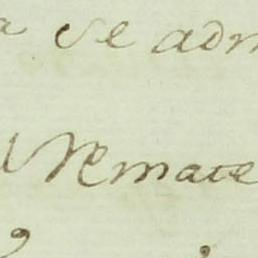 a se adm
l Remate